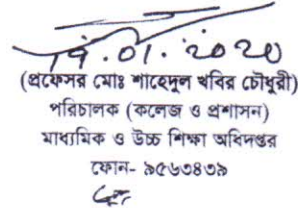 19.01.2020
(প্রফেসর মোঃ শাহেদুল খবির চৌধুরী)
পরিচালক (কলেজ ও প্রশাসন)
মাধ্যমিক ও উচ্চ শিক্ষা অধিদপ্তর
ফোন- ৯৫৬৩৪৩৯